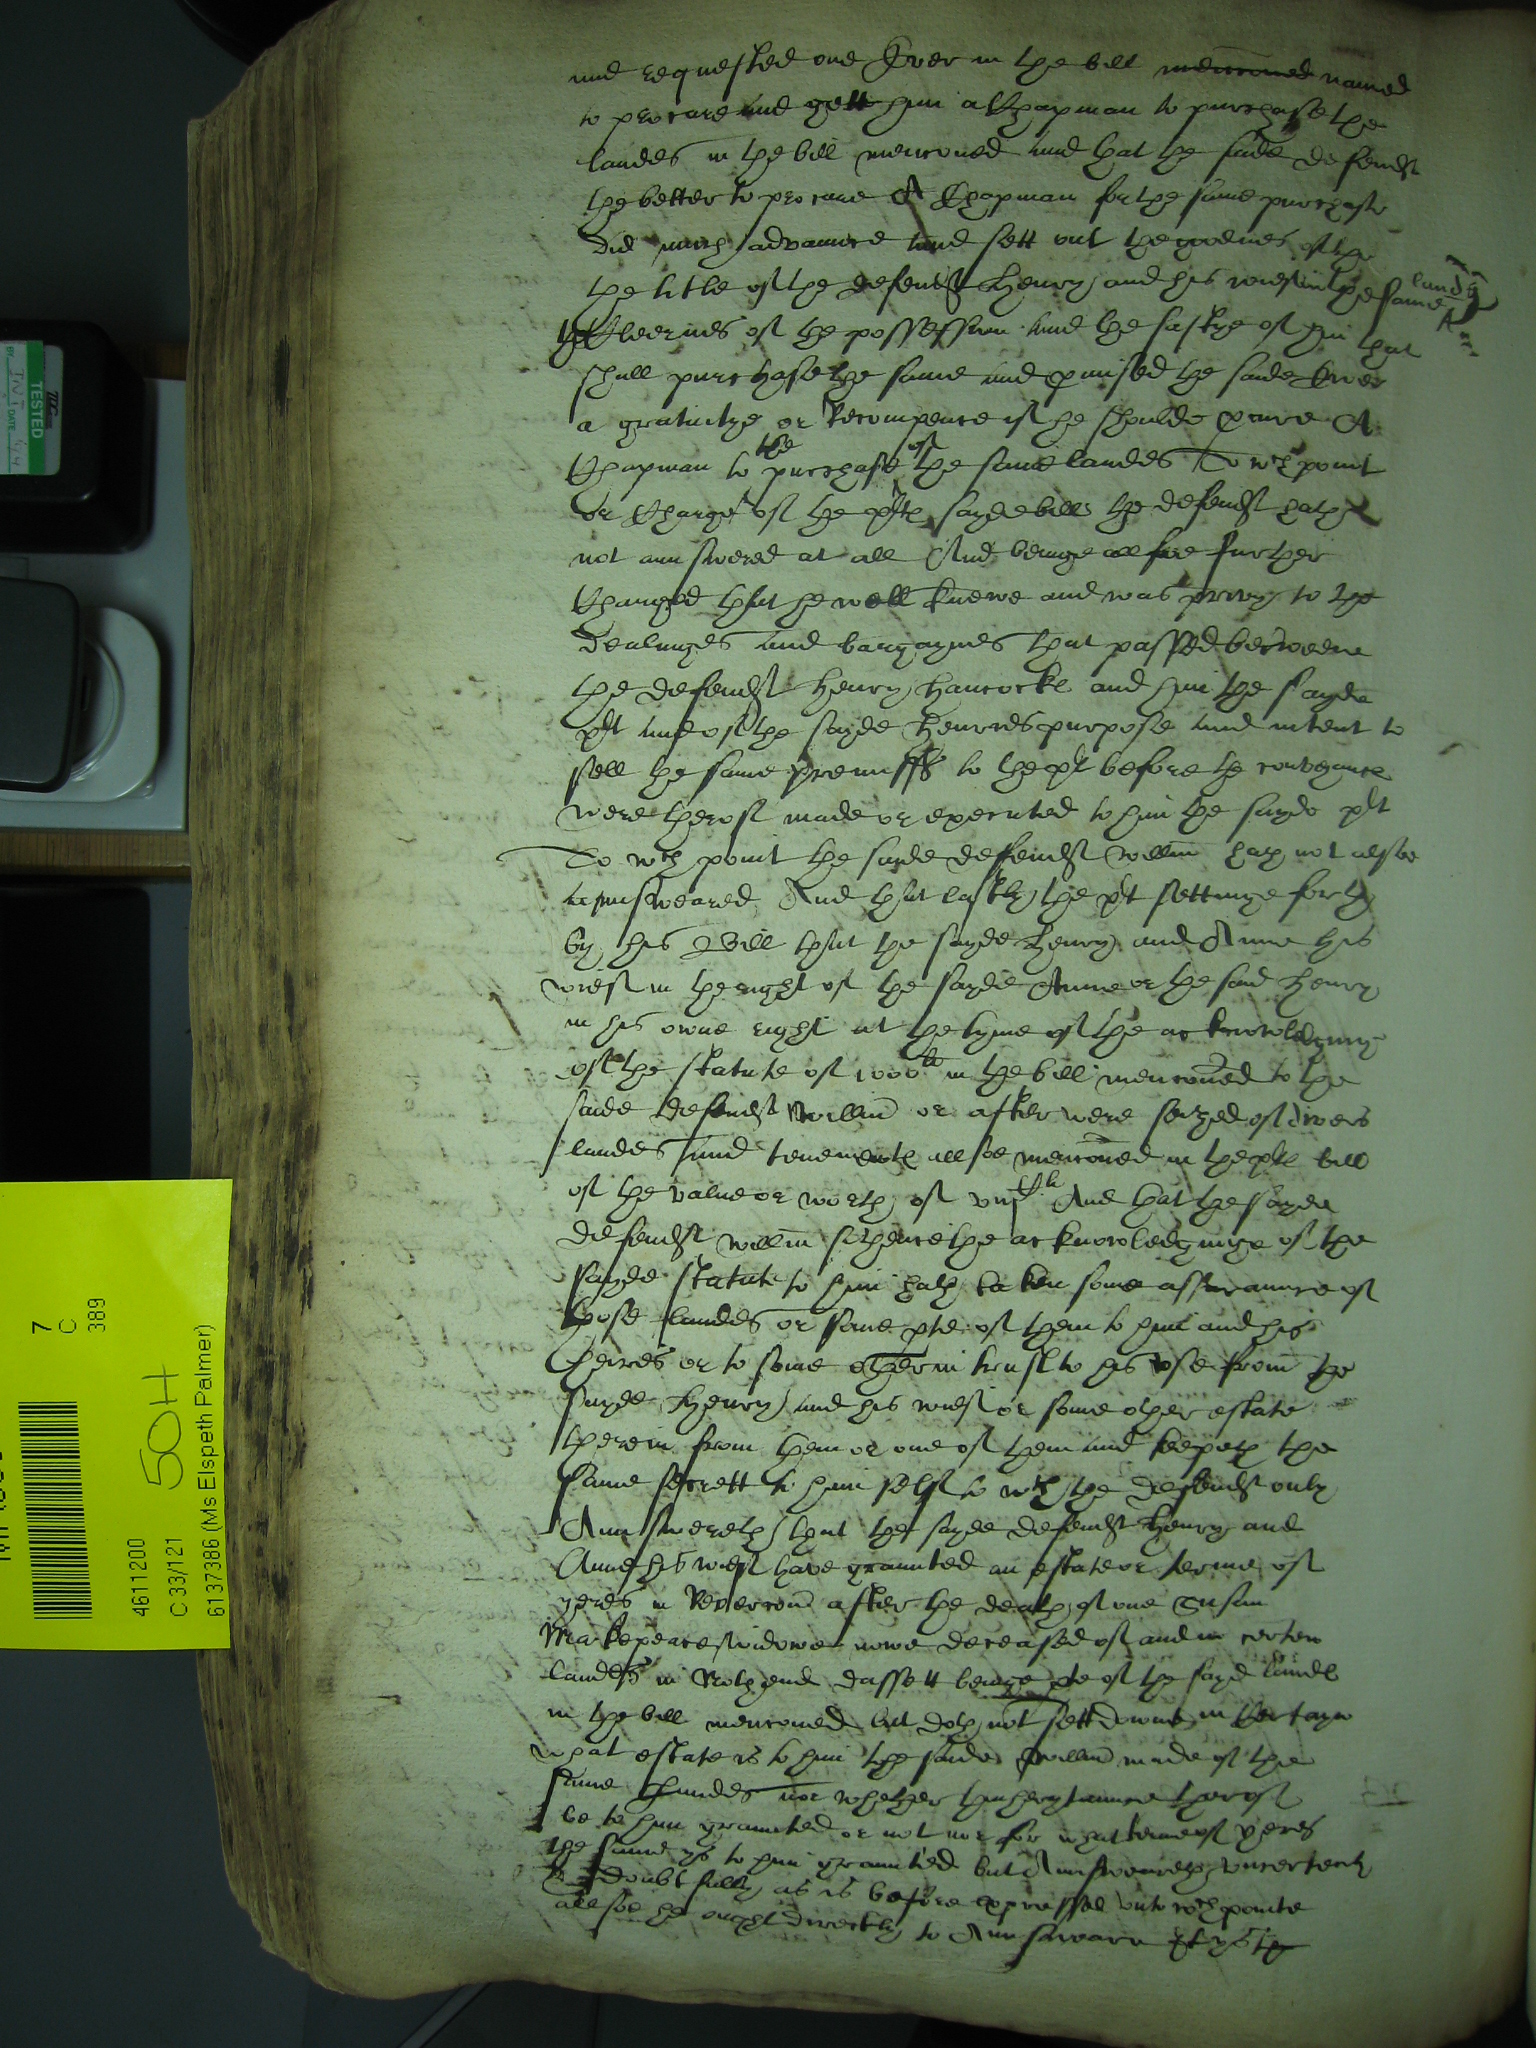 and requested one Ever in the bill mencioned named
to procure and gett him a Chapman to purchase the
landes in the bill mencioned and that the saide defendt
the better to procure A Chapman for the same purchase
did much advaunce and sett out the goodnes of the
the title of the defendt Henry and his wief in the same landes
the Cleernes of the possession and the saftye of him that
shall purchase the same and pmised the saide Ever
a gratuitye or Recompence if he shoulde pcure A
Chapman to the purchase of the same landes To wch point
or Charge of the plts sayde bill the defendt hath
not aunswered at all And beinge allsoe further
Charged that he well knewe and was privy to the
dealinges and bargaynes that passed betweene
the defendt Henry Hancocke and him the sayde
plt and of the sayde Henries purpose and intent to
sell the same premisses to the plt before the conveyance
were therof made or executed to him the sayde plt
To wch point the saide defendt Willm hath not alsoe
aunsweared And that lastly the plt settinge forth
by his Bill that the sayde Henry and Anne his
wief in the right of the sayde Anne or the said Henry
in his owne right at the tyme of the acknowledginge
of the statute of 1000li in the bill mencioned to the
saide defendt Willm or after were seized of divers
landes and tenements allsoe mencioned in the plts bill
of the value or worth of And that the sayde
defendt Willm sithence the acknowledginge of the
sayde statute to him hath taken some assuraunce of
those landes or some pte of them to him and his
heires or to some other in trust to his use from the
sayde Henry and his wief or some other estate
therein from them or one of them and keepeth the
same secrett to him self to wch the defendt only
Aunswereth that the sayde defendt Henry and
Anne his wief have graunted an estate or terme of
yeres in Revercion after the death of one Susan
Makepeace widowe nowe deceased of and in certen
landes in Northend dassett beinge pte of the sayd lands
in the bill mencioned but doth not sett downe in Certayn
what estate is to him the saide Willm made of the
same landes nor whether thinherytaunce therof
be to him graunted or not nor for what terme of yeres
the same ys to him graunted but Aunsweareth uncertenly
& doubtfully as is before expressed unto wch pointe
allsoe he ought directly to Aunsweare
TESTED
DATE
7
C
389
50H
4611200
C 33/121
6137386 (Ms Elspeth Palmer)